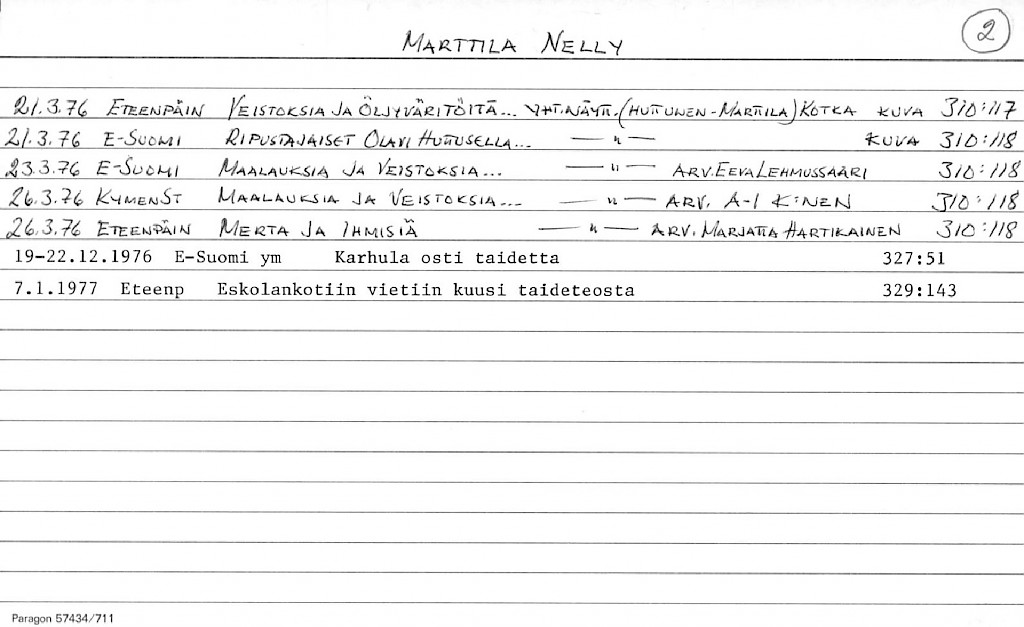 MARTTILA NELLY 2
21.3.76 ETEENPÄIN VEISTOKSIA JA ÖLJYVÄRITÖITÄ... YHT.NÄYTT. (HUTUNEN-MARTTILA) KOTKA KUVA 310:117
21.3.76 E-SUOMI RIPUSTAJAISET OLAVI HUTUSELLA... —〃— KUVA 310:118
23.3.76 E-SUOMI MAALAUKSIA JA VEISTOKSIA... —〃— ARV. EEVA LEHMUSSAARI 310:118
26.3.76 KYMENST MAALAUKSIA JA VEISTOKSIA... —〃— ARV. A-I K:NEN 310:118
26.3.76 ETEENPÄIN MERTA JA IHMISIÄ —〃— ARV. MARJATTA HARTIKAINEN 310:118
19-22.12.1976 E-Suomi ym Karhula osti taidetta 327:51
7.1.1977 Eteenp Eskolankotiin vietiin kuusi taideteosta 329:143
Paragon 57434/711